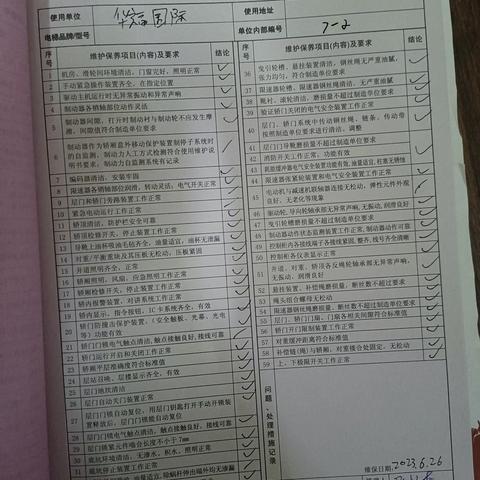 使用单位 华福国际 使用地址
电梯品牌/型号 单位内部编号 7-2
序号 维护保养项目(内容)及要求 结论
1 机房、滑轮间环境清洁,门窗完好,照明正常
2 手动紧急操作装置齐全,在指定位置
3 驱动主机运行时无异常振动和异常声响
4 制动器各销轴部位动作灵活
5 制动器间隙,打开时制动衬与制动轮不应发生摩擦,间隙值符合制造单位要求
6 制动器作为轿厢意外移动保护装置制停子系统时的自监测,制动力人工方式检测符合使用维护说明书要求,制动力自监测系统有记录
7 编码器清洁,安装牢固
8 限速器各销轴部位润滑,转动灵活;电气开关正常
9 层门和轿门旁路装置工作正常
10 紧急电动运行工作正常
11 轿顶清洁,防护栏安全可靠
12 轿顶检修开关、停止装置工作正常
13 导靴上油杯吸油毛毡齐全,油量适宜,油杯无泄漏
14 对重/平衡重块及其压板无松动,压板紧固
15 井道照明齐全,正常
16 轿厢照明,风扇、应急照明工作正常
17 轿厢检修开关、停止装置工作正常
18 轿内报警装置、对讲系统工作正常
19 轿内显示、指令按钮、IC卡系统齐全,有效
20 轿门防撞击保护装置,(安全触板、光幕、光电等)功能有效
21 轿门门锁电气触点清洁,触点接触良好,接线可靠
22 轿门运行开启和关闭工作正常
23 轿厢平层准确度符合标准值
24 层站召唤、层楼显示齐全,有效
25 层门地坎清洁
26 层门自动关门装置正常
27 层门门锁自动复位,用层门钥匙打开手动开锁装置释放后,层门门锁能自动复位
28 层门门锁电气触点清洁,触点接触良好,接线可靠
29 层门锁紧元件啮合长度不小于7mm
30 底坑环境清洁,无渗水、积水,照明正常
31 底坑停止装置工作正常
油量适宜,除蜗杆伸出端外均无渗漏
维护保养项目(内容)及要求 结论
36 曳引轮槽、悬挂装置清洁,钢丝绳无严重油腻,张力均匀,符合制造单位要求
37 限速器轮槽、限速器钢丝绳清洁,无严重油腻
38 靴衬、滚轮清洁,磨损量不超过制造单位要求
39 验证轿门关闭的电气安全装置工作正常
40 层门、轿门系统中传动钢丝绳、链条、传动带按照制造单位要求进行清洁、调整
41 层门门导靴磨损量不超过制造单位要求
42 消防开关工作正常,功能有效
43 耗能缓冲器电气安全装置功能有效,油量适宜,柱塞无锈蚀
44 限速器张紧轮装置和电气安全装置工作正常
45 电动机与减速机联轴器连接无松动,弹性元件外观良好,无老化等现象
46 驱动轮、导向轮轴承部无异常声,无振动,润滑良好
47 曳引轮槽磨损量不超过制造单位要求
48 制动器动作状态监测装置工作正常,制动器动作可靠
49 控制柜内各接线端子各接线紧固、整齐,线号齐全清晰
50 控制柜各仪表显示正常
51 井道、对重、轿顶各反绳轮轴承部无异常声响,无振动,润滑良好
52 悬挂装置、补偿绳磨损量、断丝数不超过要求
53 绳头组合螺母无松动
54 限速器钢丝绳磨损量、断丝数不超过制造单位要求
55 层门、轿门门扇、门扇各相关间隙符合标准值
56 轿门开门限制装置工作正常
57 对重缓冲距离符合标准值
58 补偿链(绳)与轿厢、对重接合处固定,无松动
59 上、下极限开关工作正常
问题、处理措施记录
维保日期: 2023.6.26